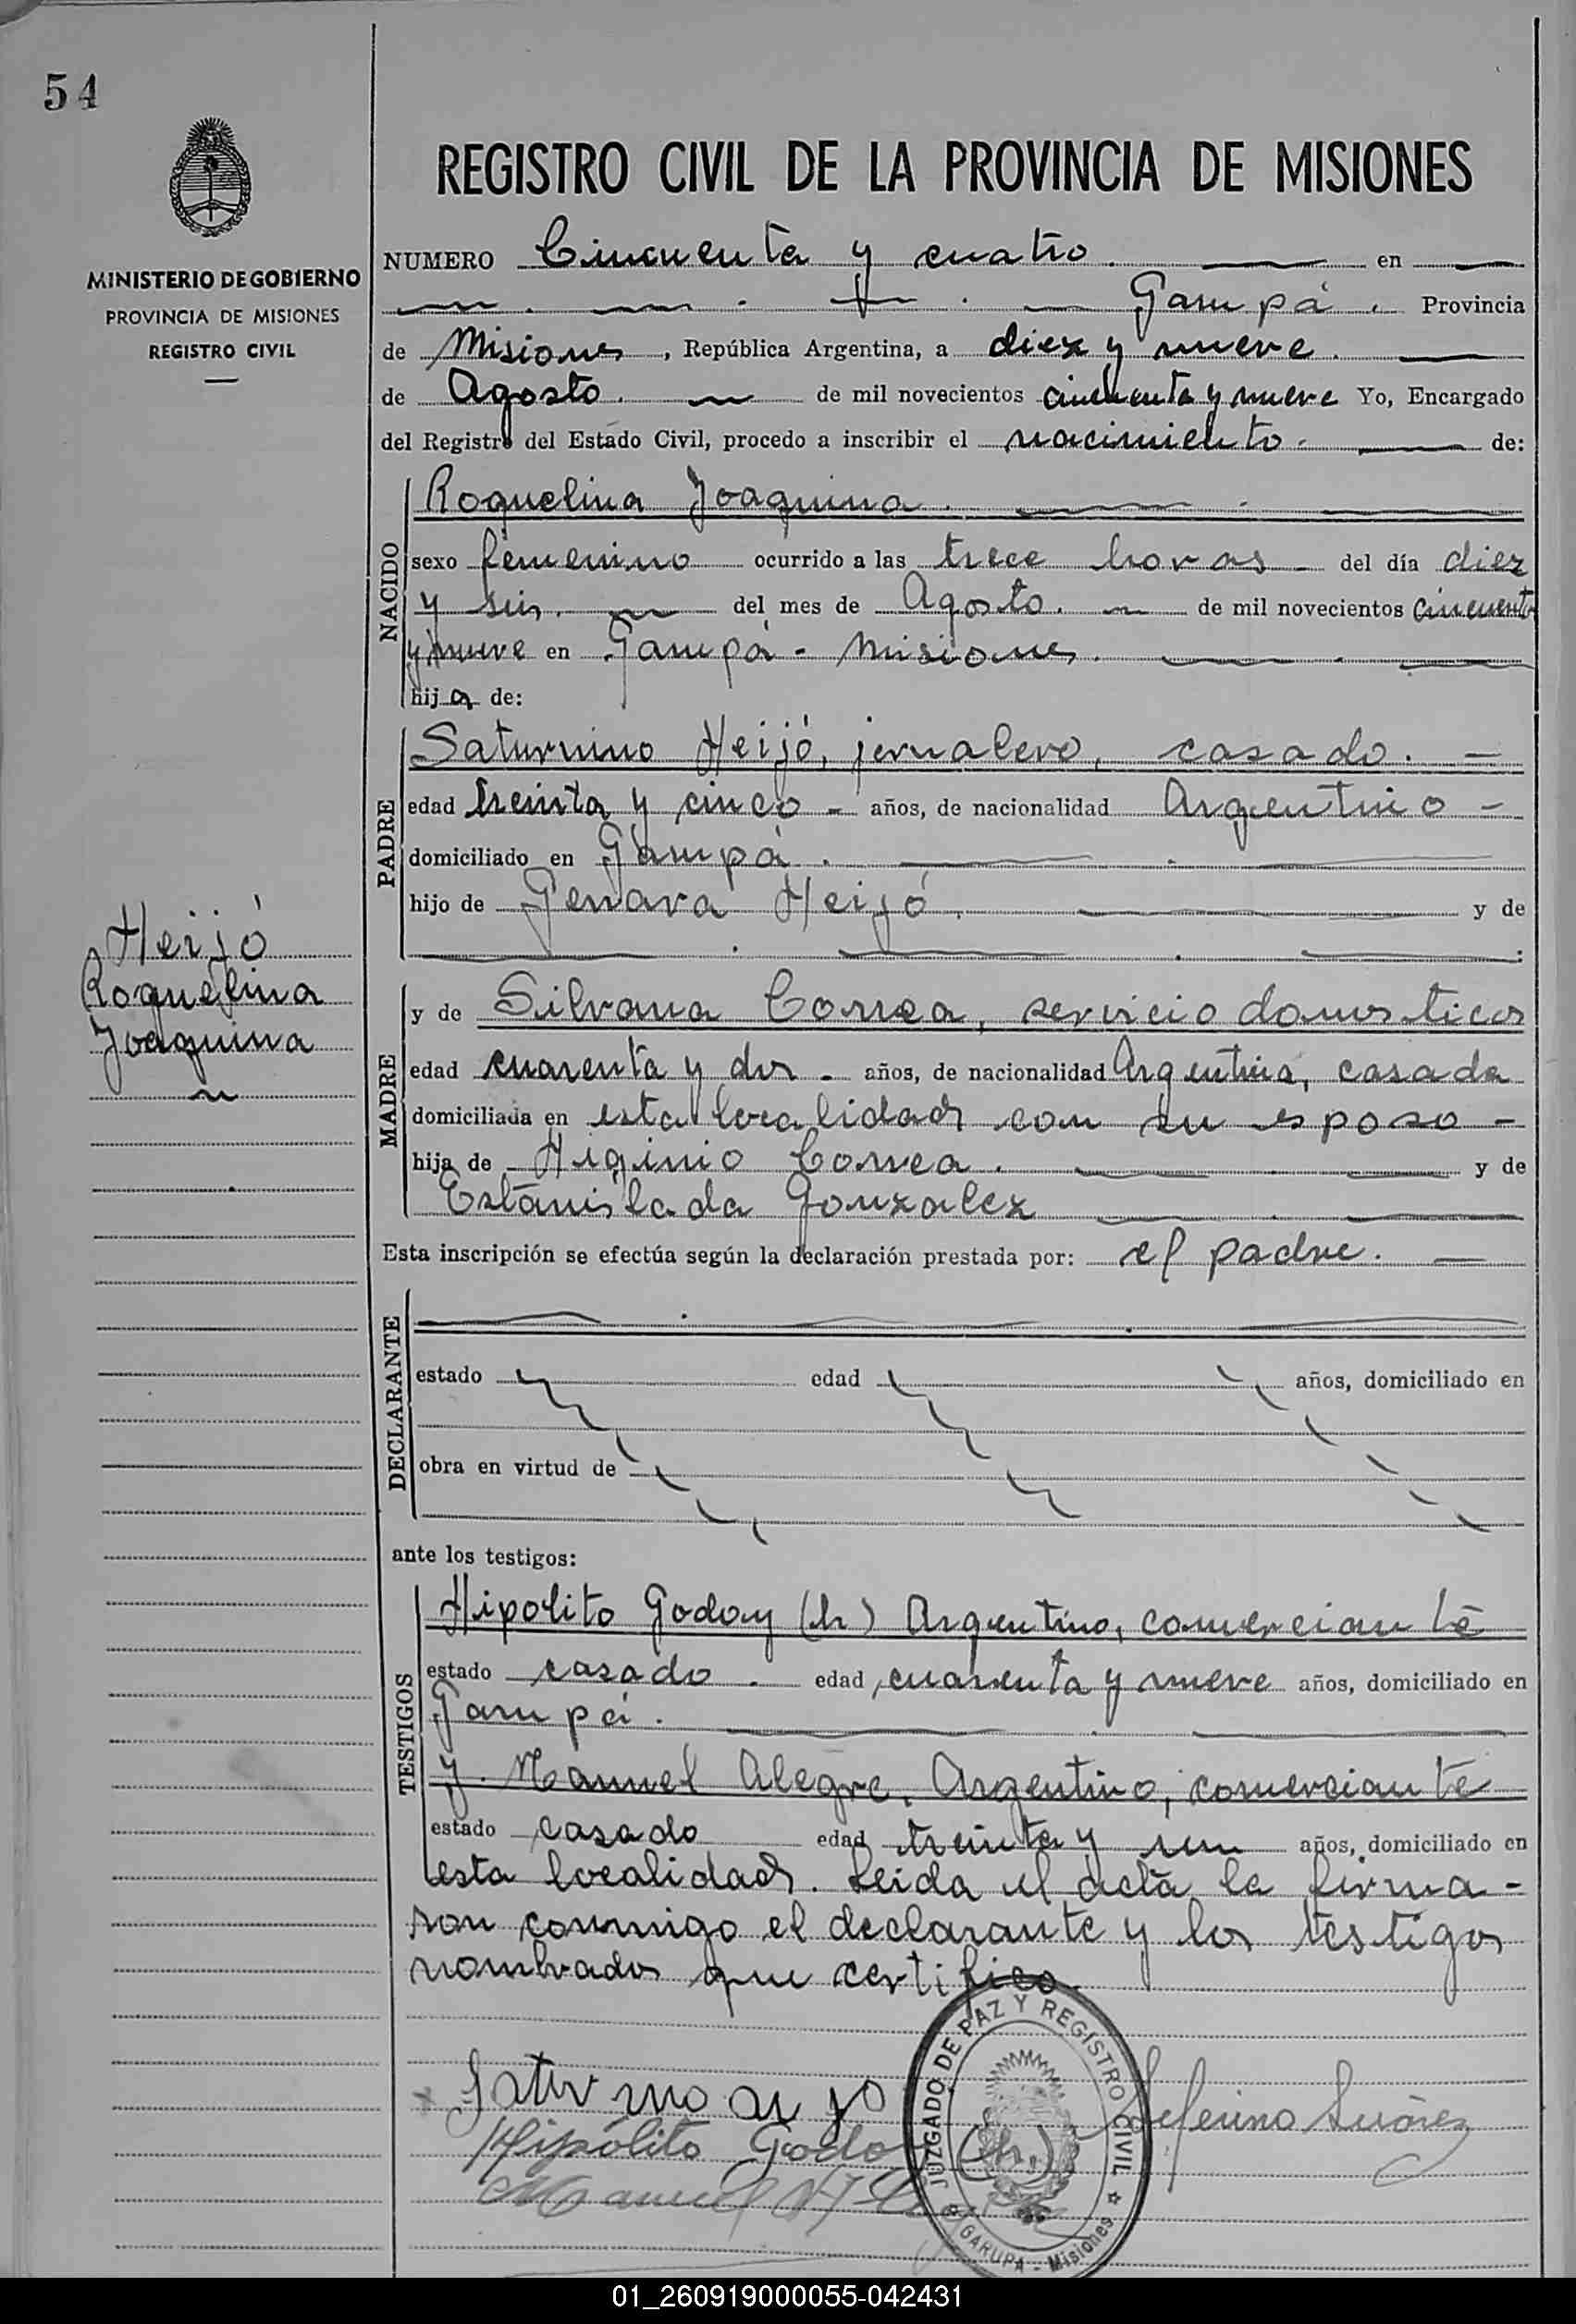 54
REGISTRO CIVIL DE LA PROVINCIA DE MISIONES
MINISTERIO DE GOBIERNO
PROVINCIA DE MISIONES
REGISTRO CIVIL
NUMERO Cincuenta y cuatro. en
Garupá. Provincia
de Misiones, República Argentina, a diez y nueve.
de Agosto. de mil novecientos cincuenta y nueve Yo, Encargado
del Registro del Estado Civil, procedo a inscribir el nacimiento. de:
NACIDO
Roquelina Joaquina.
sexo femenino ocurrido a las trece horas - del día diez
y seis. del mes de Agosto. de mil novecientos cincuenta
y nueve en Garupá - Misiones.
hija de:
PADRE
Saturnino Heijó, jornalero, casado. -
edad treinta y cinco - años, de nacionalidad Argentino -
domiciliado en Garupá.
hijo de Genara Heijó. y de
Heijó
Roquelina
Joaquina
MADRE
y de Silvana Correa, servicio domesticos
edad cuarenta y dos - años, de nacionalidad Argentina, casada
domiciliada en esta localidad con su esposo -
hija de Higinio Correa. y de
Estanislada Gonzalez
Esta inscripción se efectúa según la declaración prestada por: el padre.
DECLARANTE
estado edad años, domiciliado en
obra en virtud de
ante los testigos:
TESTIGOS
Hipolito Godoy (h) Argentino, comerciante
estado casado. edad cuarenta y nueve años, domiciliado en
Garupá.
y. Manuel Alegre, Argentino, comerciante
estado casado edad treinta y un años, domiciliado en
esta localidad. Leida el acta la firma-
ron conmigo el declarante y los testigos
nombrados que certifico.
Hipólito Godoy (h.)
Seferino Suárez
Manuel
JUZGADO DE PAZ Y REGISTRO CIVIL
GARUPA - Misiones
01_260919000055-042431